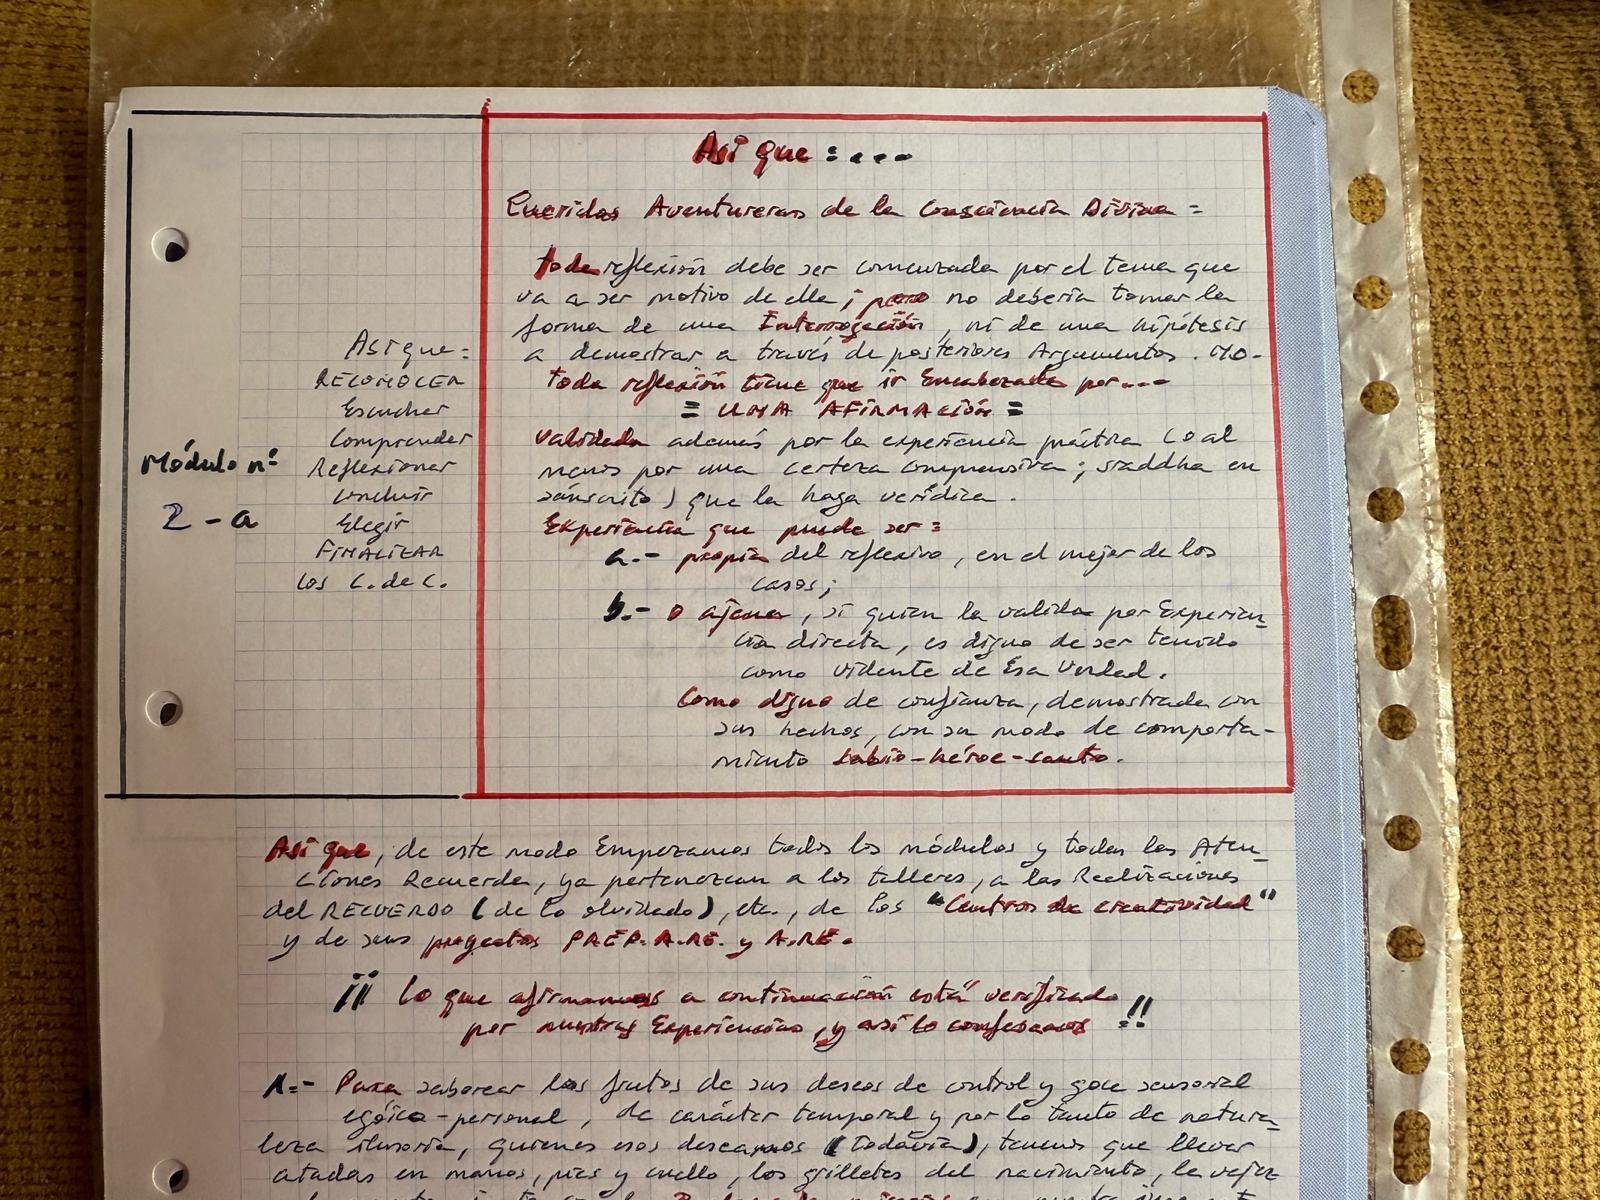 Así que:...
Queridos Aventureros de la Consciencia Divina =
toda reflexión debe ser comenzada por el tema que
va a ser motivo de ella; pero no debería tomar la
forma de una Interrogación, ni de una hipótesis
a demostrar a través de posteriores Argumentos. NO-
toda reflexión tiene que ir Encabezada por...-
= UNA AFIRMACIÓN =
validada además por la experiencia práctica (o al
menos por una certeza comprensiva; sraddha en
sánscrito) que la haga verídica.
Experiencia que puede ser =
a.- propia del reflexivo, en el mejor de los
casos;
b.- o ajena, si quien la valida por Experien-
cia directa, es digno de ser tenido
como vidente de Esa Verdad.
Como digno de confianza, demostrada con
sus hechos, con su modo de comporta-
miento sabio-héroe-santo.
Módulo nº
2-a
Así que =
RECONOCER
Escuchar
Comprender
Reflexionar
Concluir
Elegir
FINALIZAR
los C. de C.
Así que, de este modo Empezamos todos los módulos y todas las Aten-
ciones Recuerda, ya pertenezcan a los talleres, a las Realizaciones
del RECUERDO (de lo olvidado), etc., de los "Centros de creatividad"
y de sus proyectos PREP.A.RE. y A.RE.
¡¡ lo que afirmamos a continuación está verificado
por nuestras Experiencias, y así lo confesamos !!
1.- Para saborear los frutos de sus deseos de control y goce sensorial
egóico-personal, de carácter temporal y por lo tanto de natura-
leza ilusoria, quienes esos deseamos (todavía), tenemos que llevar
atadas en manos, pies y cuello, los grilletes del nacimiento, la vejez